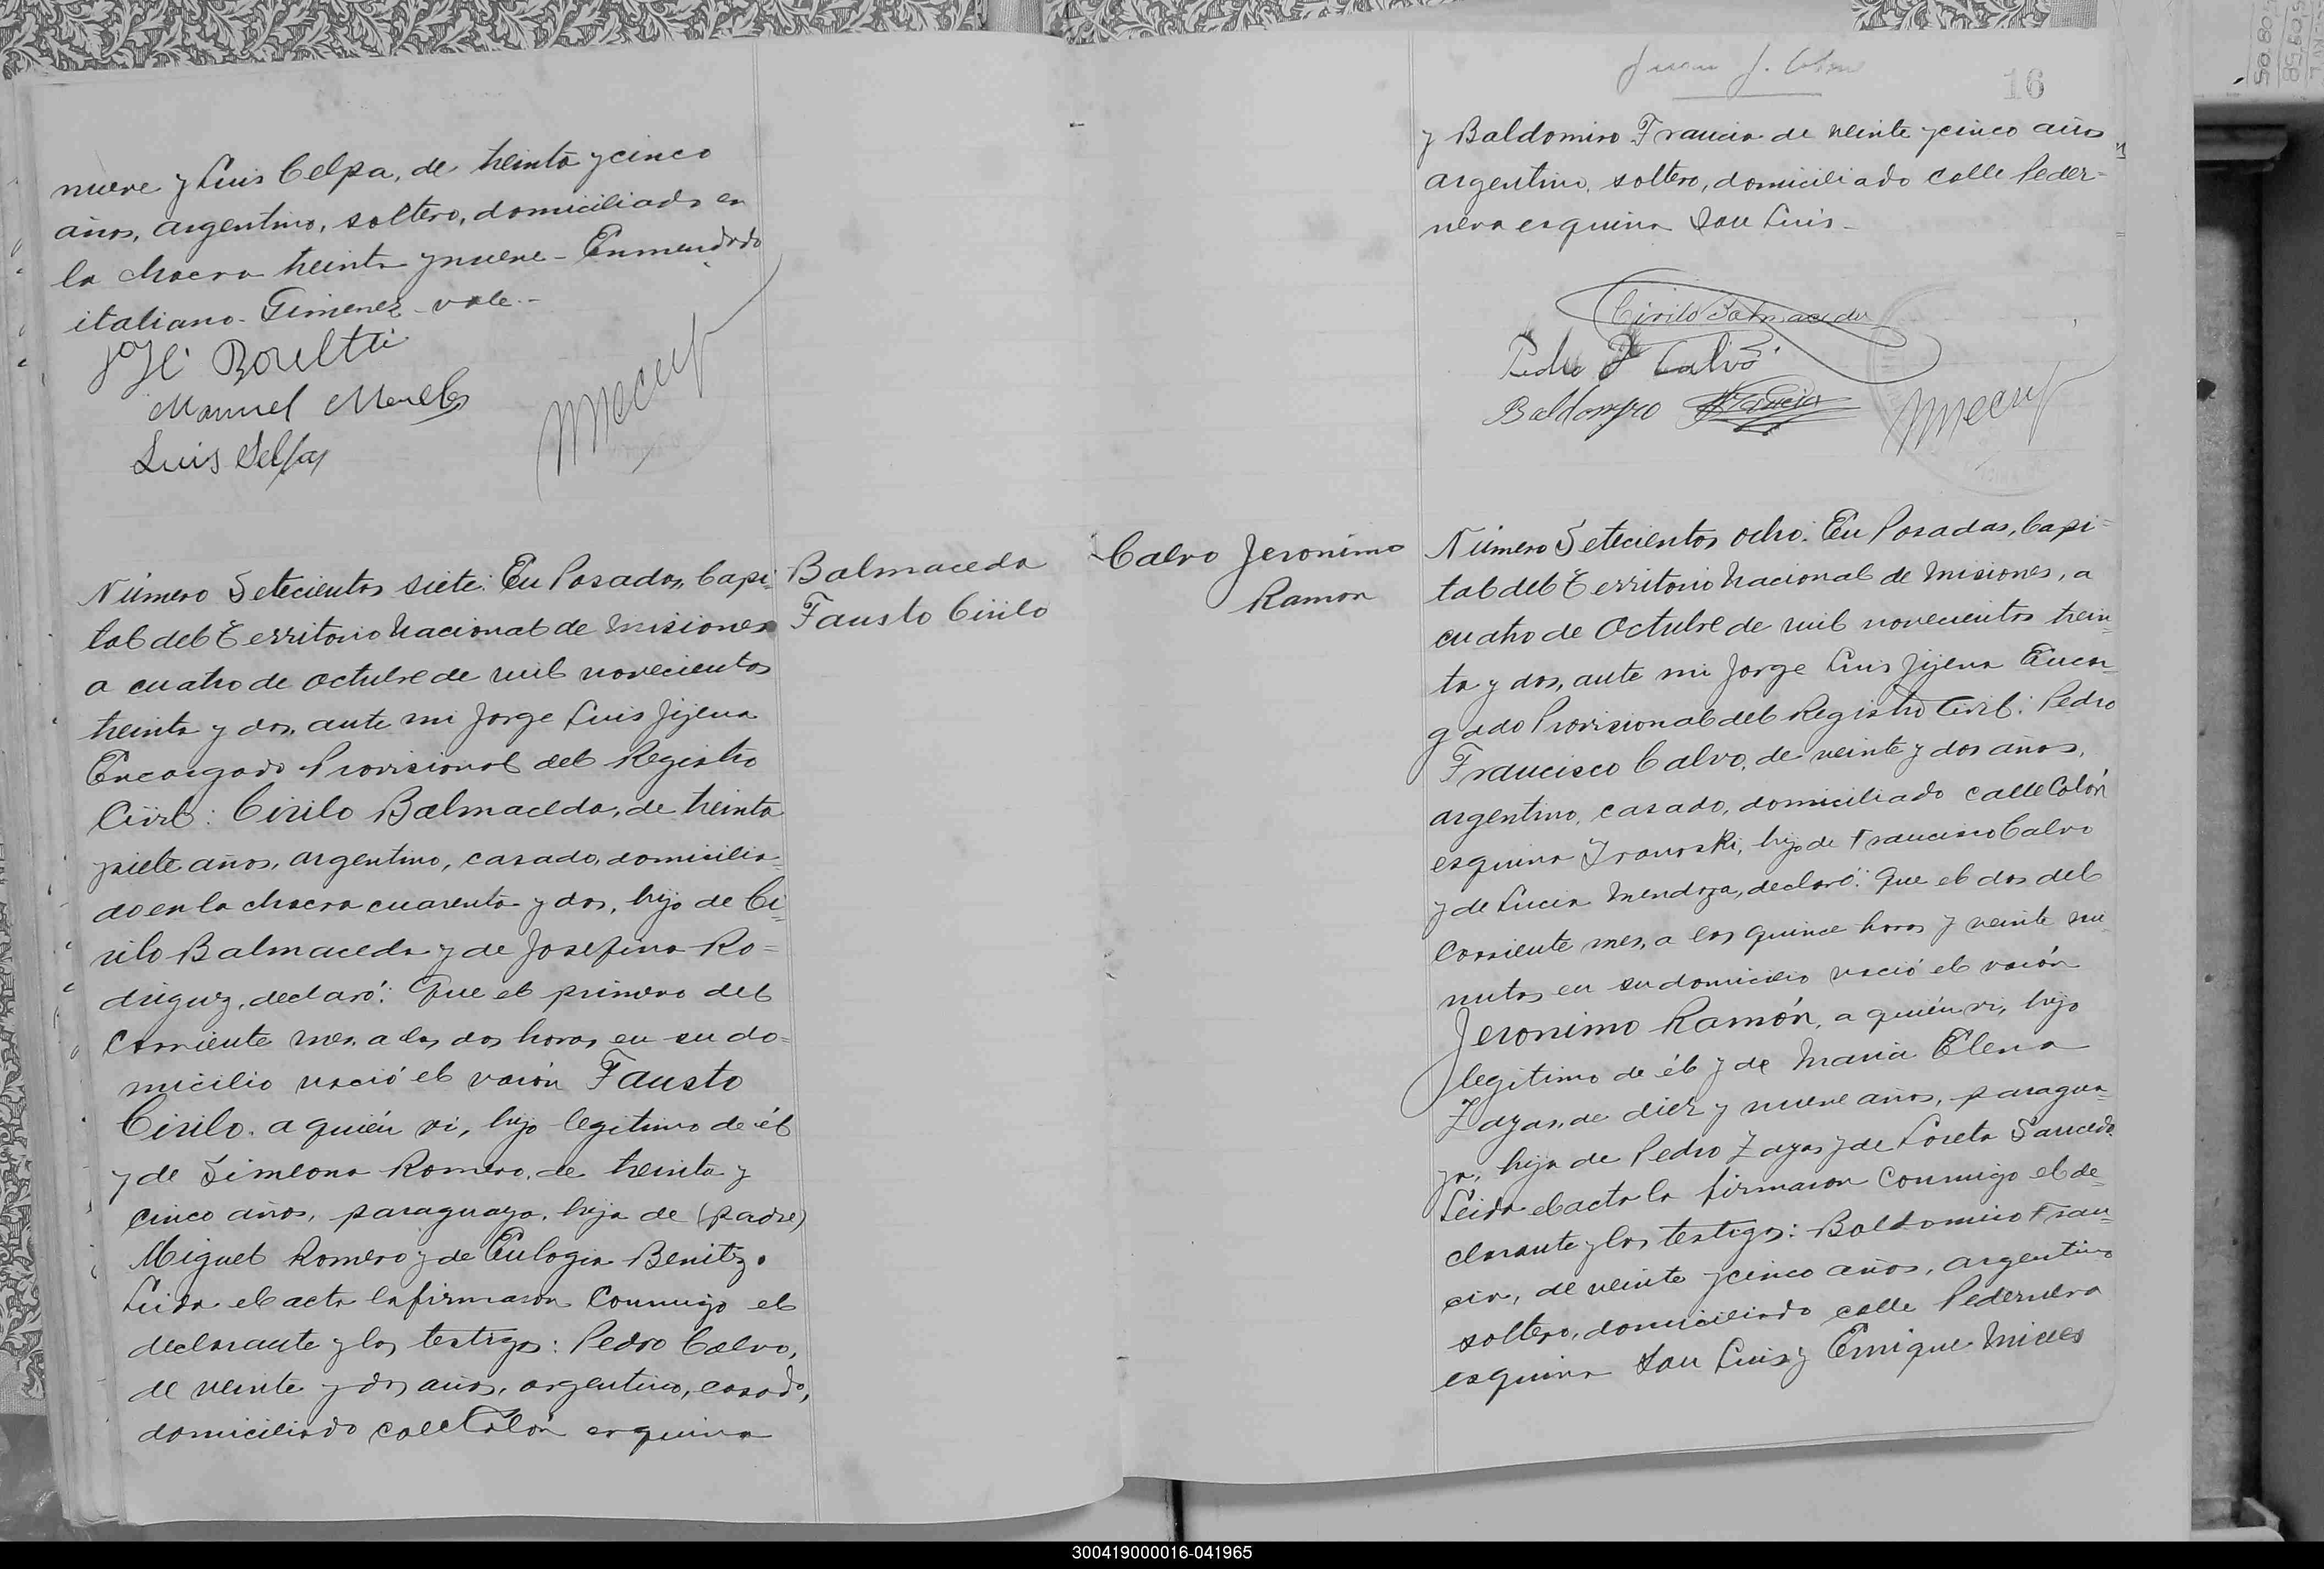 nueve y Luis Celpa, de treinta y cinco
años, argentino, soltero, domiciliado en
la chacra treinta y nueve - Enmendado
italiano - Gimenez - vale. -
José
Manuel
Luis
Número Setecientos siete: En Posadas, Capi-
tal del Territorio Nacional de Misiones
a cuatro de Octubre de mil novecientos
treinta y dos, ante mi Jorge Luis Jijena
Encargado Provisional del Registro
Civil: Cirilo Balmaceda, de treinta
y siete años, argentino, casado, domicilia-
do en la chacra cuarenta y dos, hijo de Ci=
rilo Balmaceda y de Josefina Ro=
driguez, declaró: Que el primero del
corriente mes, a las dos horas, en su do=
micilio nació el varón Fausto
Cirilo, a quién vi, hijo legitimo de él
y de Simeona Romero, de treinta y
cinco años, paraguaya, hija de (padre)
Miguel Romero y de Eulogia Benitez.
Leida el acta la firmaron conmigo el
declarante y los testigos: Pedro Calvo,
de veinte y dos años, argentino, casado,
domiciliado calle Colón esquina
Balmaceda
Fausto Cirilo
Juan J.
16
y Baldomiro Francia de veinte y cinco años
argentino, soltero, domiciliado calle Peder=
nera esquina San Luis -
Cirilo Balmaceda
Pedro F Calvo
Baldomiro Francia
Calvo Jeronimo
Ramon
Número Setecientos ocho: En Posadas, Capi=
tal del Territorio Nacional de Misiones, a
cuatro de Octubre de mil novecientos trein=
ta y dos, ante mi Jorge Luis Jijena Encar=
gado Provisional del Registro Civil: Pedro
Francisco Calvo, de veinte y dos años,
argentino, casado, domiciliado calle Colón
esquina, hijo de Francisco Calvo
y de Lucia Mendoza, declaró: Que el dos del
corriente mes, a las quince horas y veinte mi=
nutos en su domicilio nació el varón
Jeronimo Ramón, a quién vi, hijo
legitimo de él y de Maria Elena
Zayas, de diez y nueve años, paragua=
ya, hija de Pedro Zayas y de Loreta Saucedo.
Leida el acta la firmaron conmigo el de=
clarante y los testigos: Baldomiro Fran=
cia, de veinte y cinco años, argentino
soltero, domiciliado calle Pedernera
esquina San Luis y Enrique
300419000016-041965